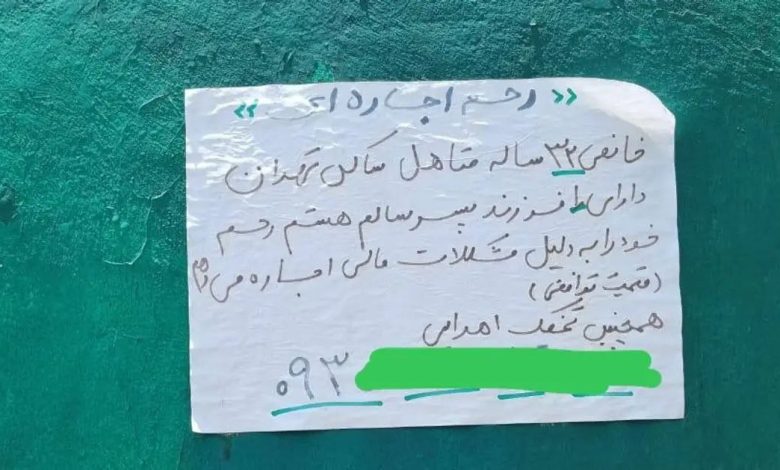 «رحم اجاره ای»
خانمی ۳۲ ساله متاهل ساکن تهران
دارای ۱ فرزند پسر سالم هستم رحم
خود را به دلیل مشکلات مالی اجاره می‌دهم
(قیمت توافقی)
همچنین تخمک اهدایی
۰۹۳